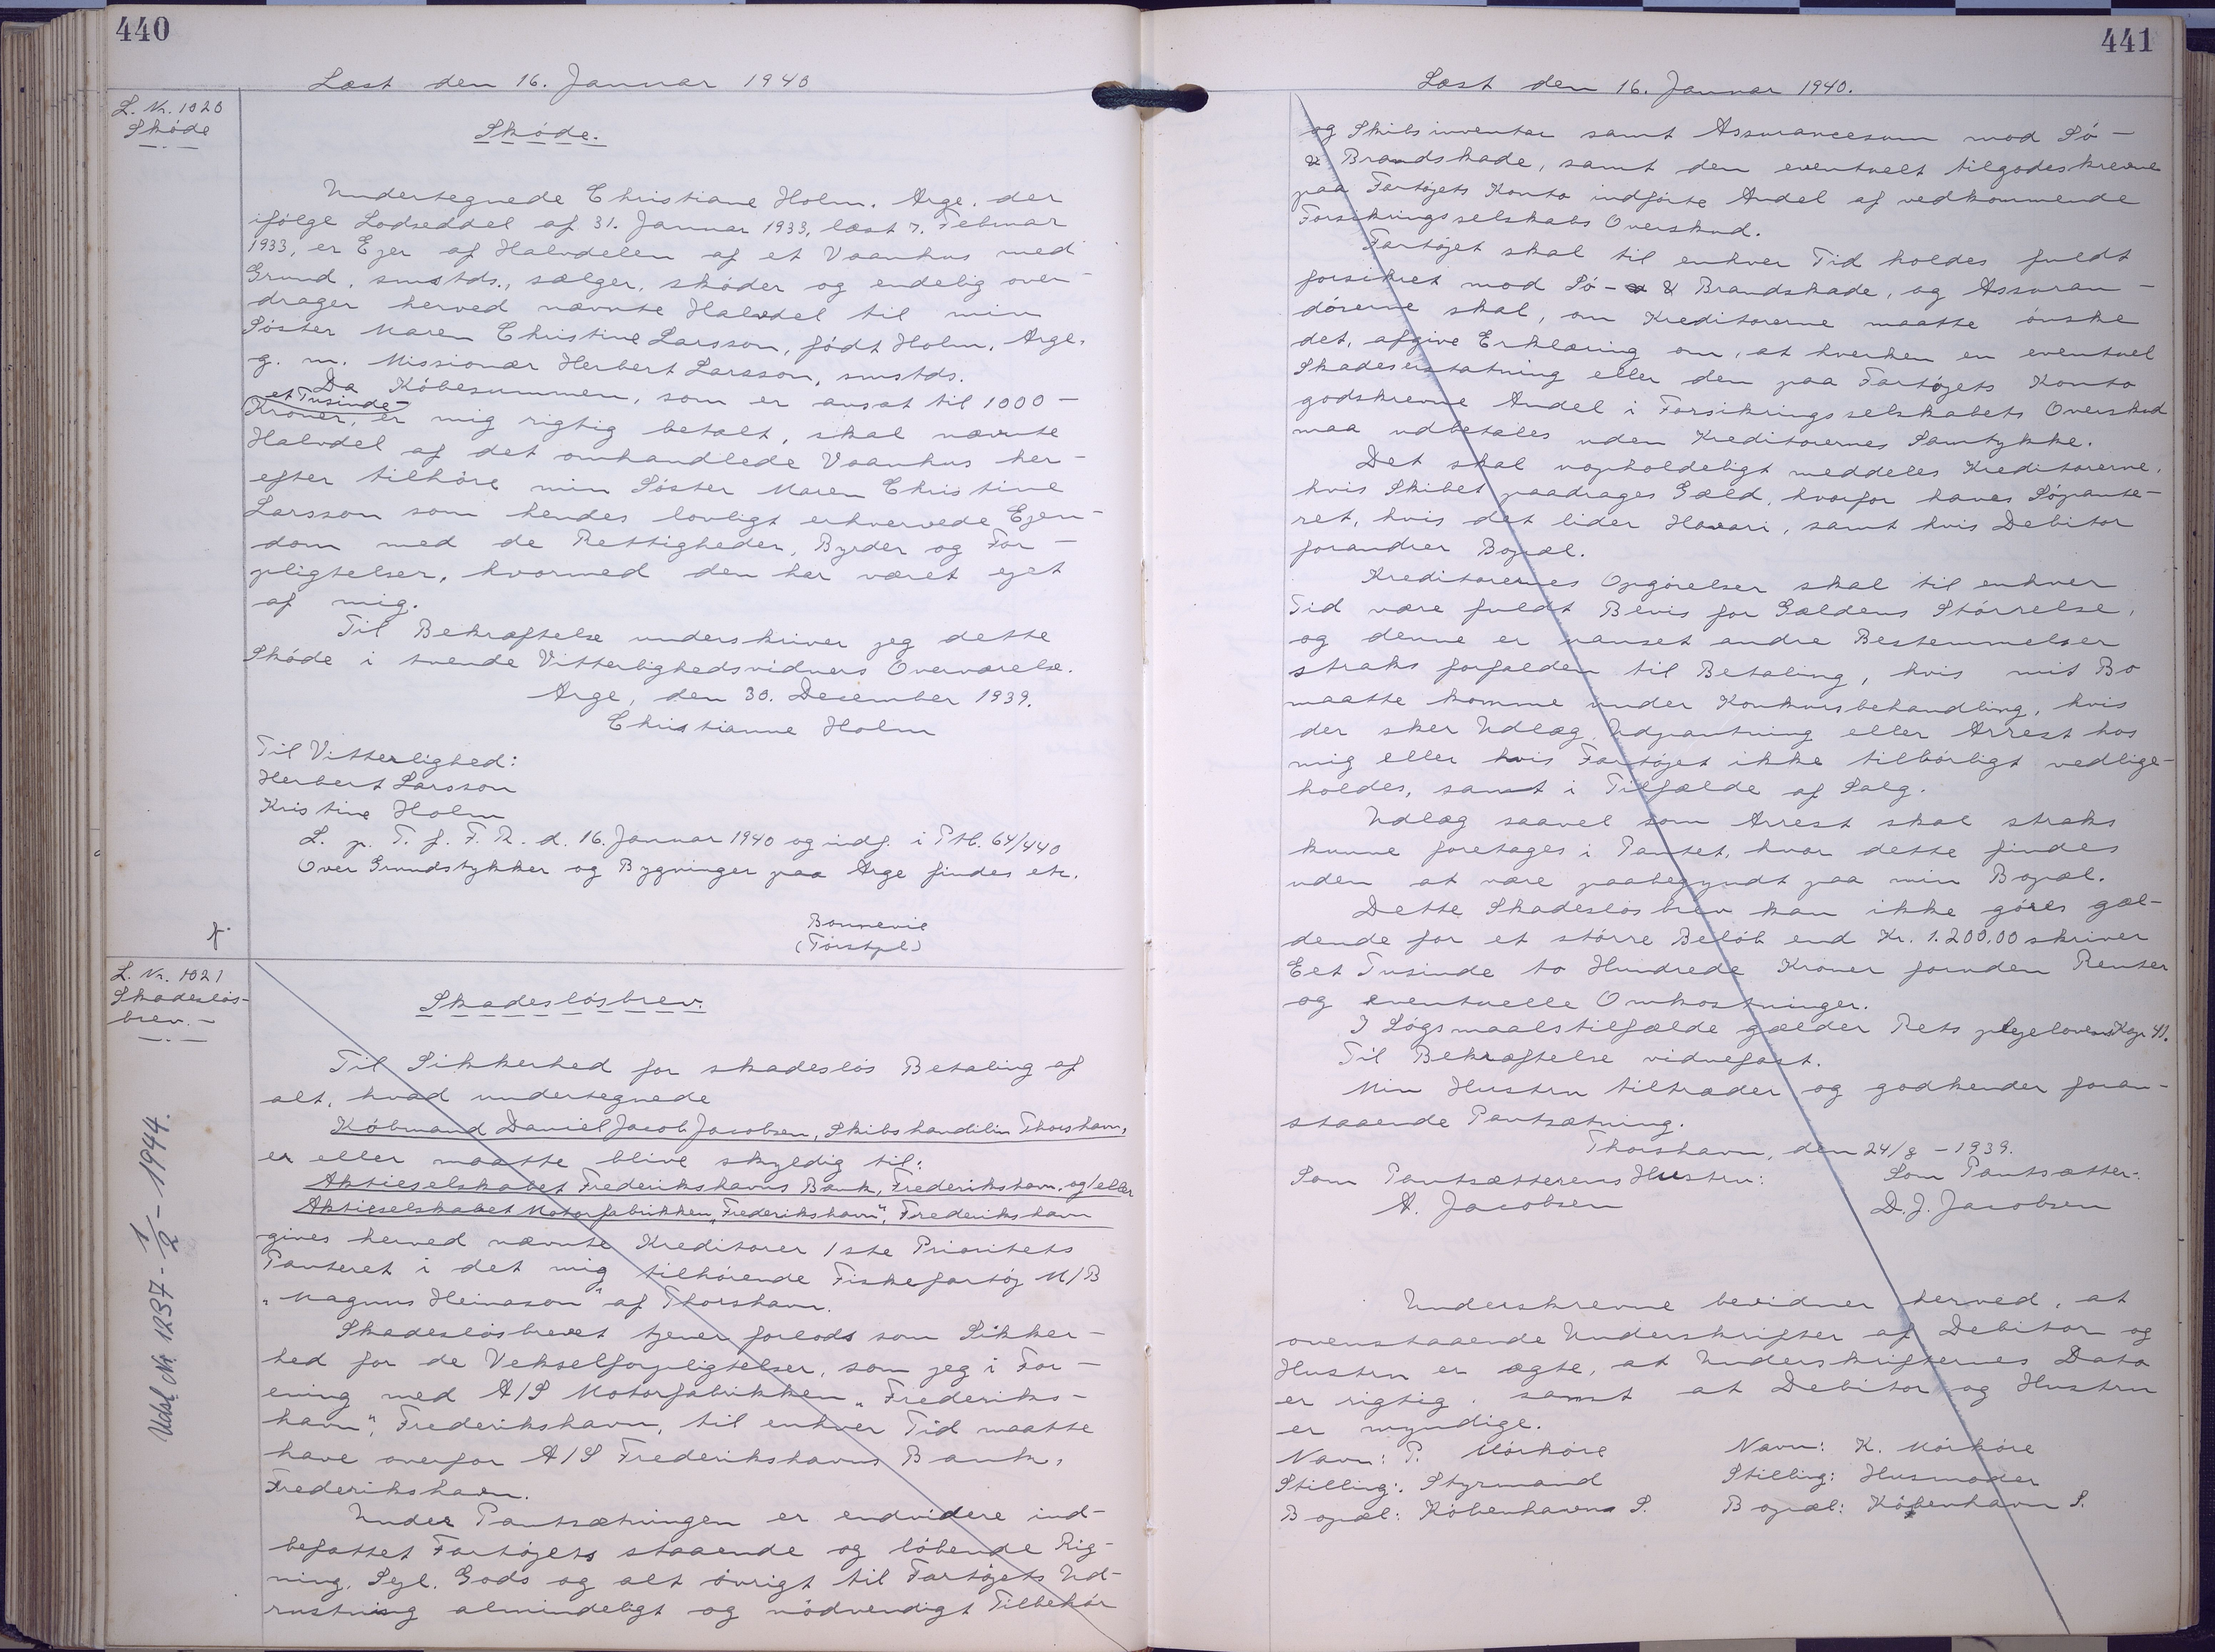 440
Læst den 16. Januar 1940
L. Nr. 1020
Skóde
Skóde.
Undertegnede Christiane Holm. Arge. der
ifólge Lodseddel af 31. Januar 1933, læst 7. Februar
1933, er Ejer af Halvdelen af et Vaanhus med
Grund, smstds., sælger, skóder og endelig over-
drager herved nævnte Halvdel til min
Sóster Maren Christine Larsson, fódt Holm, Arge,
g. m. Missionær Herbert Larsson, smstds.
Da Kóbesummen, som er ansat til 1000 -
et Tusinde -
Kroner, er mig rigtig betalt, skal nævnte
Halvdel af det omhandlede Vaanhus her-
efter tilhóre min Sóster Maren Christine
Larsson som hendes lovligt erhvervede Ejen-
dom med de Rettigheder, Byrder og For-
pligtelser, hvormed den har været ejet
af mig.
Til Bekræftelse underskriver jeg dette
Skóde i tvende Vitterlighedsvidners Overværelse.
Arge, den 30. December 1939.
Christianne Holm
Til Vitterlighed:
Herbert Larsson
Kristine Holm
L. p. T. f. F. R. d. 16. Januar 1940 og indf. i Ptb. 64/440
Over Grundstykker og Bygninger paa Arge findes etc.
Bonnevie
(Tórstpl)
f.
L. Nr. 1021
Skadeslós-
brev. -
Skadeslósbrev.
Til Sikkerhed for skadeslós Betaling af
alt, hvad undertegnede
Kóbmand Daniel Jacob Jacobsen, Skibshandilin Thorshavn,
er eller maatte blive skyldig til:
Aktieselskabet Frederikshavns Bank, Frederikshavn. og/eller
Aktieselskabet Motorfabrikken "Frederikshavn", Frederikshavn
gives herved nævnte Kreditorer 1ste Prioritets
Panteret i det mig tilhórende Fiskefartój M/B
"Magnus Heinason" af Thorshavn.
Skadeslósbrevet tjener forlods som Sikker-
hed for de Vekselforpligtelser, som jeg i For-
ening med A/S Motorfabrikken "Frederiks-
havn", Frederikshavn, til enhver Tid maatte
have overfor A/S Frederikshavns Bank,
Frederikshavn.
Under Pantsætningen er endvidere ind-
befattet Fartójets staaende og lóbende Rig-
ning, Sejl. Gods og alt óvrigt til Fartójets Ud-
rustning almindeligt og nódvendigt Tilbehór
Udsl. Nr. 1237 - 1/2 - 1944.
441
Læst den 16. Januar 1940.
og Skibsinventar samt Assurancesum mod Só-
& Brandskade, samt den eventuelt tilgodeskrevne
paa Fartójets Konto indfórte Andel af vedkommende
Forsikringsselskabs Overskud.
Fartójet skal til enhver Tid holdes fuldt
forsikret mod Só- & Brandskade, og Assuran-
dórerne skal, om Kreditorerne maatte ónske
det, afgive Erklæring om, at hverken en eventuel
Skadeserstatning eller den paa Fartójets Konto
godskrevne Andel i Forsikringsselskabets Overskud
maa udbetales uden Kreditorernes Samtykke.
Det skal uopholdeligt meddeles Kreditorerne,
hvis Skibet paadrages Gæld, hvorfor haves Sópante-
ret, hvis det lider Havari, samt hvis Debitor
forandrer Bopæl.
Kreditorernes Opgórelser skal til enhver
Tid være fuldt Bevis for Gældens Stórrelse,
og denne er uanset andre Bestemmelser
straks forfalden til Betaling, hvis mit Bo
maatte komme under Konkursbehandling, hvis
der sker Udlæg, Udpantning eller Arrest hos
mig eller hvis Fartójet ikke tilbórligt vedlige-
holdes, samt i Tilfælde af Salg.
Udlæg saavel som Arrest skal straks
kunne foretages i Pantet, hvor dette findes
uden at være paabegyndt paa min Bopæl.
Dette Skadeslósbrev kan ikke góres gæl-
dende for et stórre Belób end Kr. 1.200.00 skriver
Eet Tusinde to Hundrede Kroner foruden Renter
og eventuelle Omkostninger.
I Sógsmaalstilfælde gælder Retsplejelovens Kap 41.
Til Bekræftelse vidnefast.
Min Hustru tiltræder og godkender foran-
staaende Pantsætning.
Thorshavn, den 24/8 - 1939.
Som Pantsætterens Hustru: Som Pantsætter:
A. Jacobsen D. J. Jacobsen
Underskrevne bevidner herved, at
ovenstaaende Underskrifter af Debitor og
Hustru er ægte, at Underskrifternes Dato
er rigtig, samt at Debitor og Hustru
er myndige.
Navn: P. Mórkóre Navn: K. Mórkóre
Stilling: Styrmand Stilling: Husmoder
Bopæl: Kóbenhavn S. Bopæl: Kóbenhavn S.